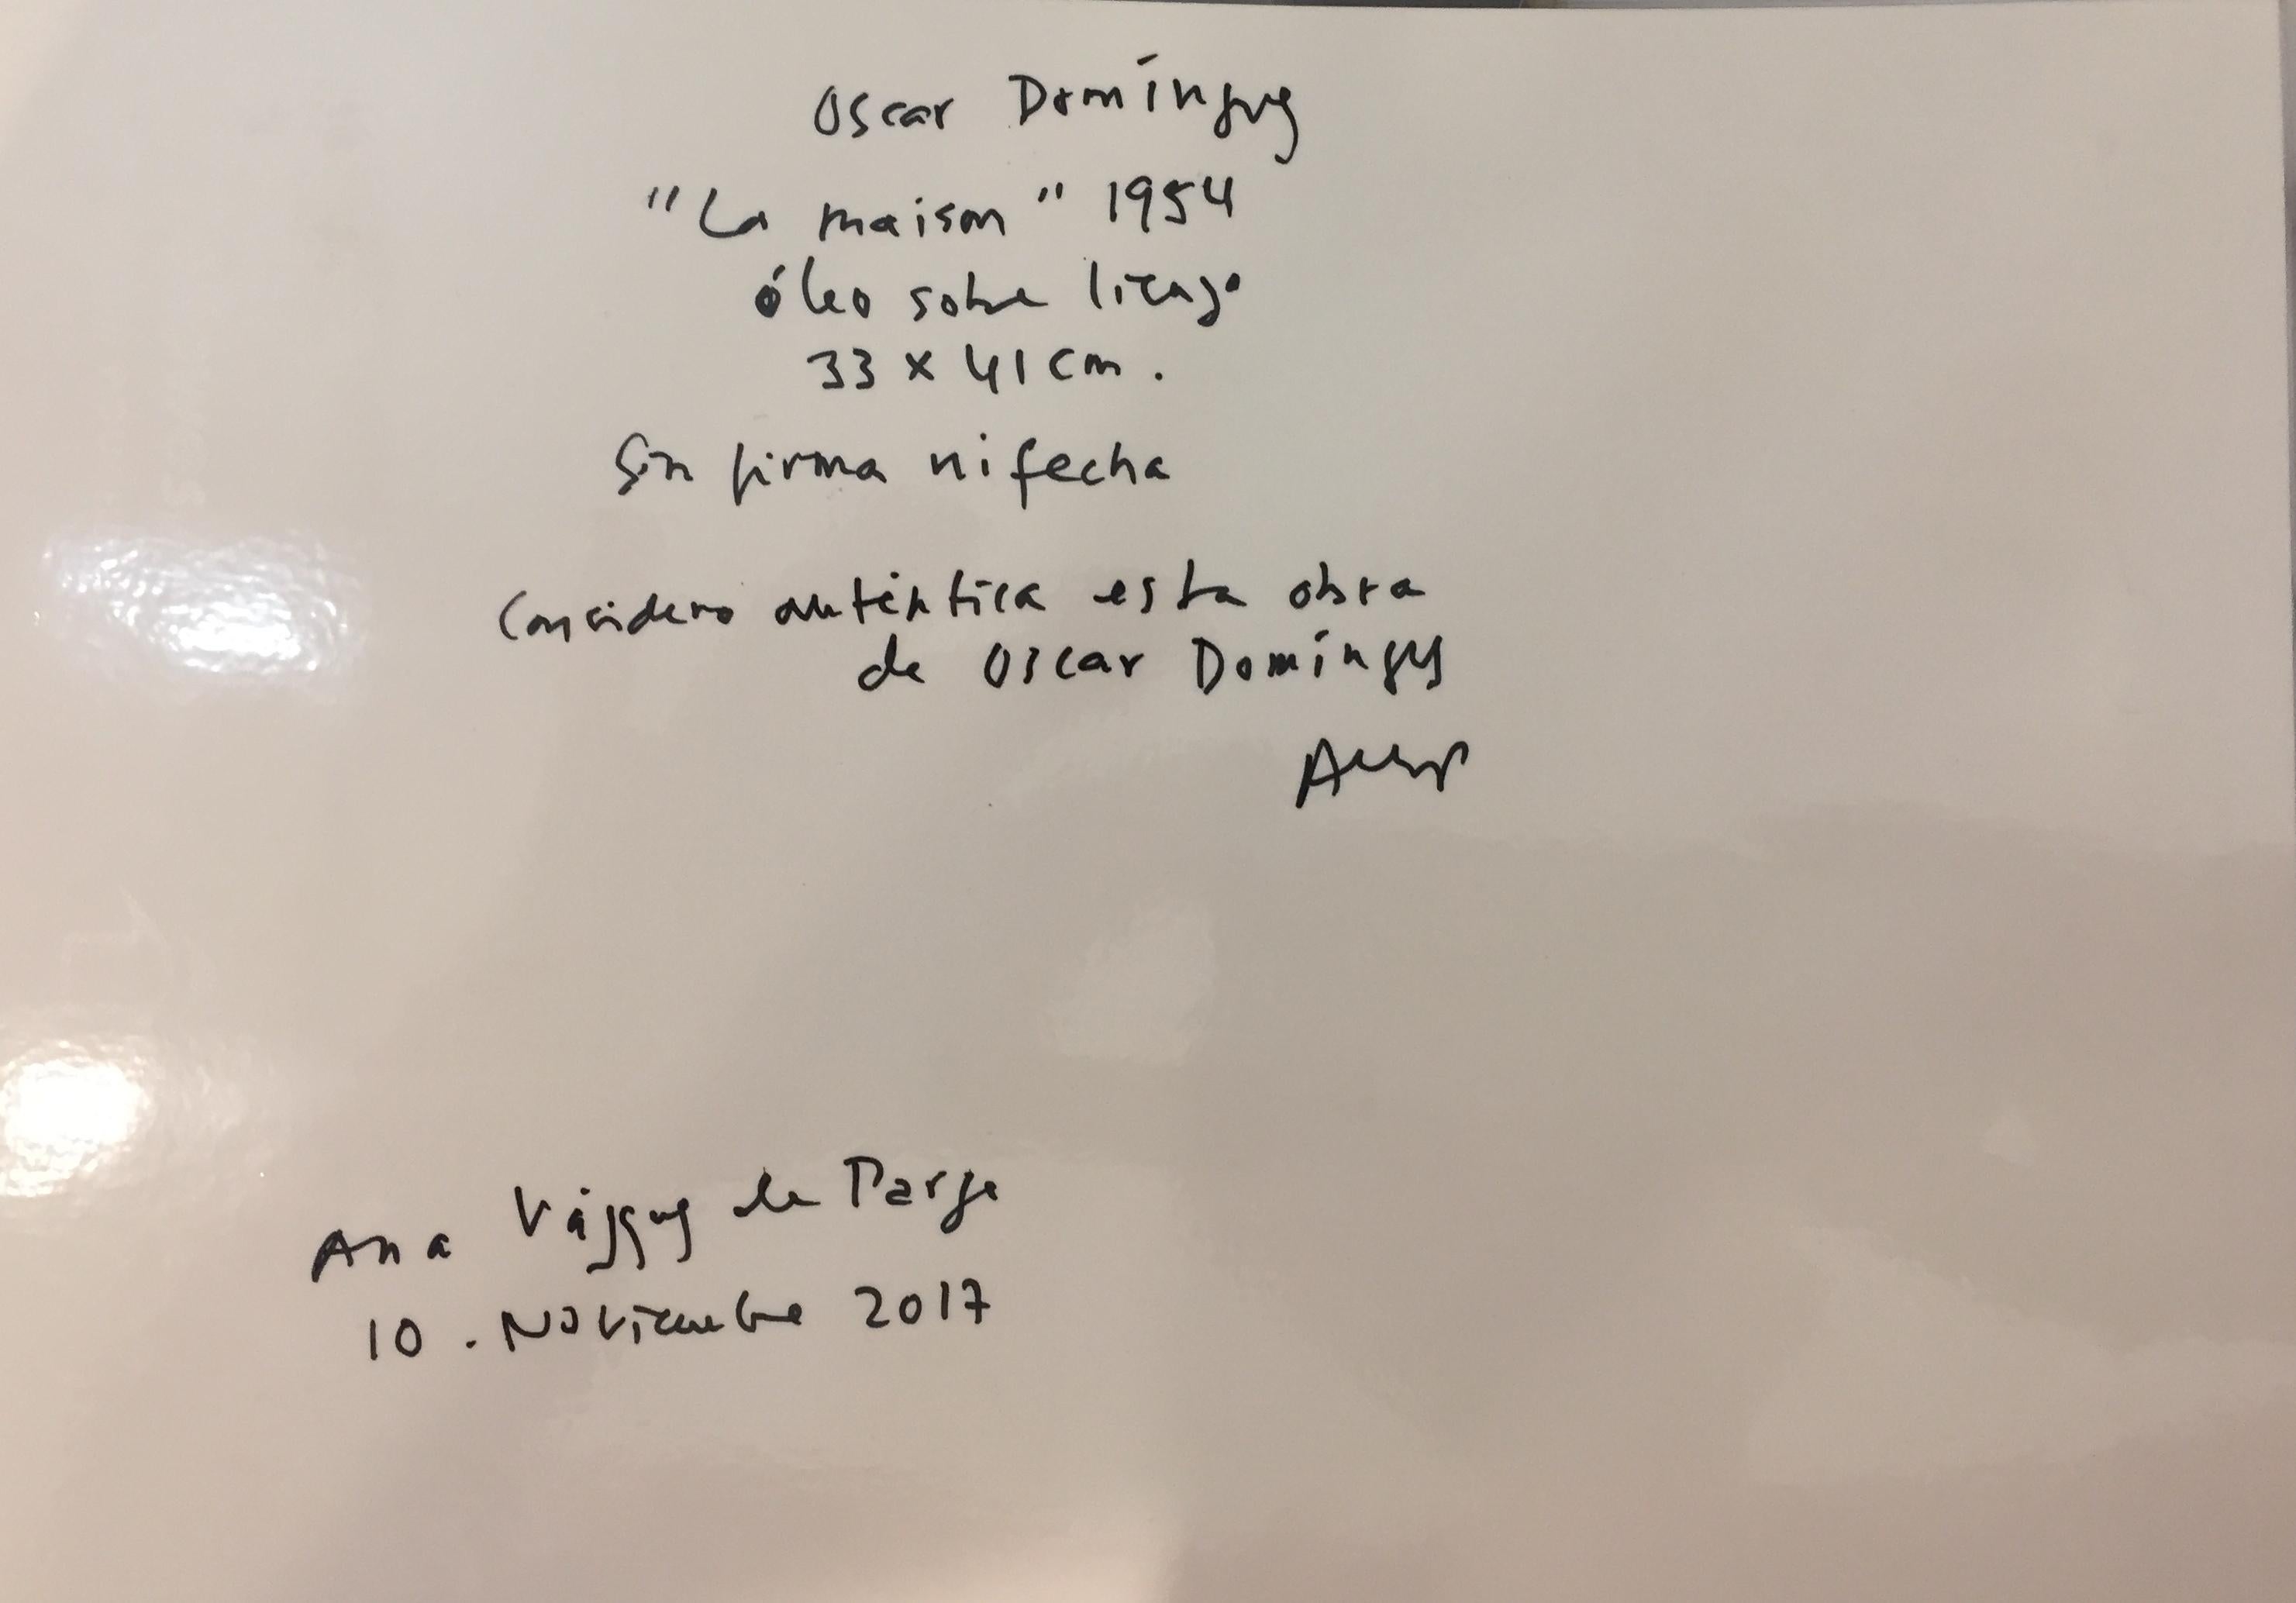 Oscar Domínguez
"La maison" 1954
óleo sobre lienzo
33 x 41 cm.
Sin firma ni fecha
Considero auténtica esta obra
de Oscar Domínguez
Ana Vázquez de Parga
10. Noviembre 2017